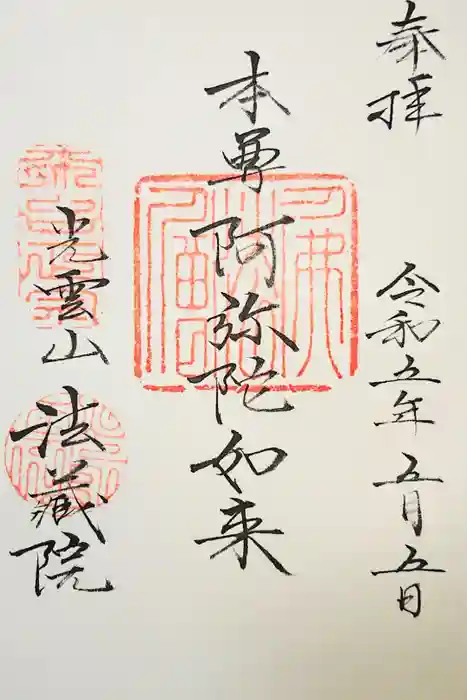 奉拝
令和五年 五月五日
本尊 阿弥陀如来
光雲山 法蔵院